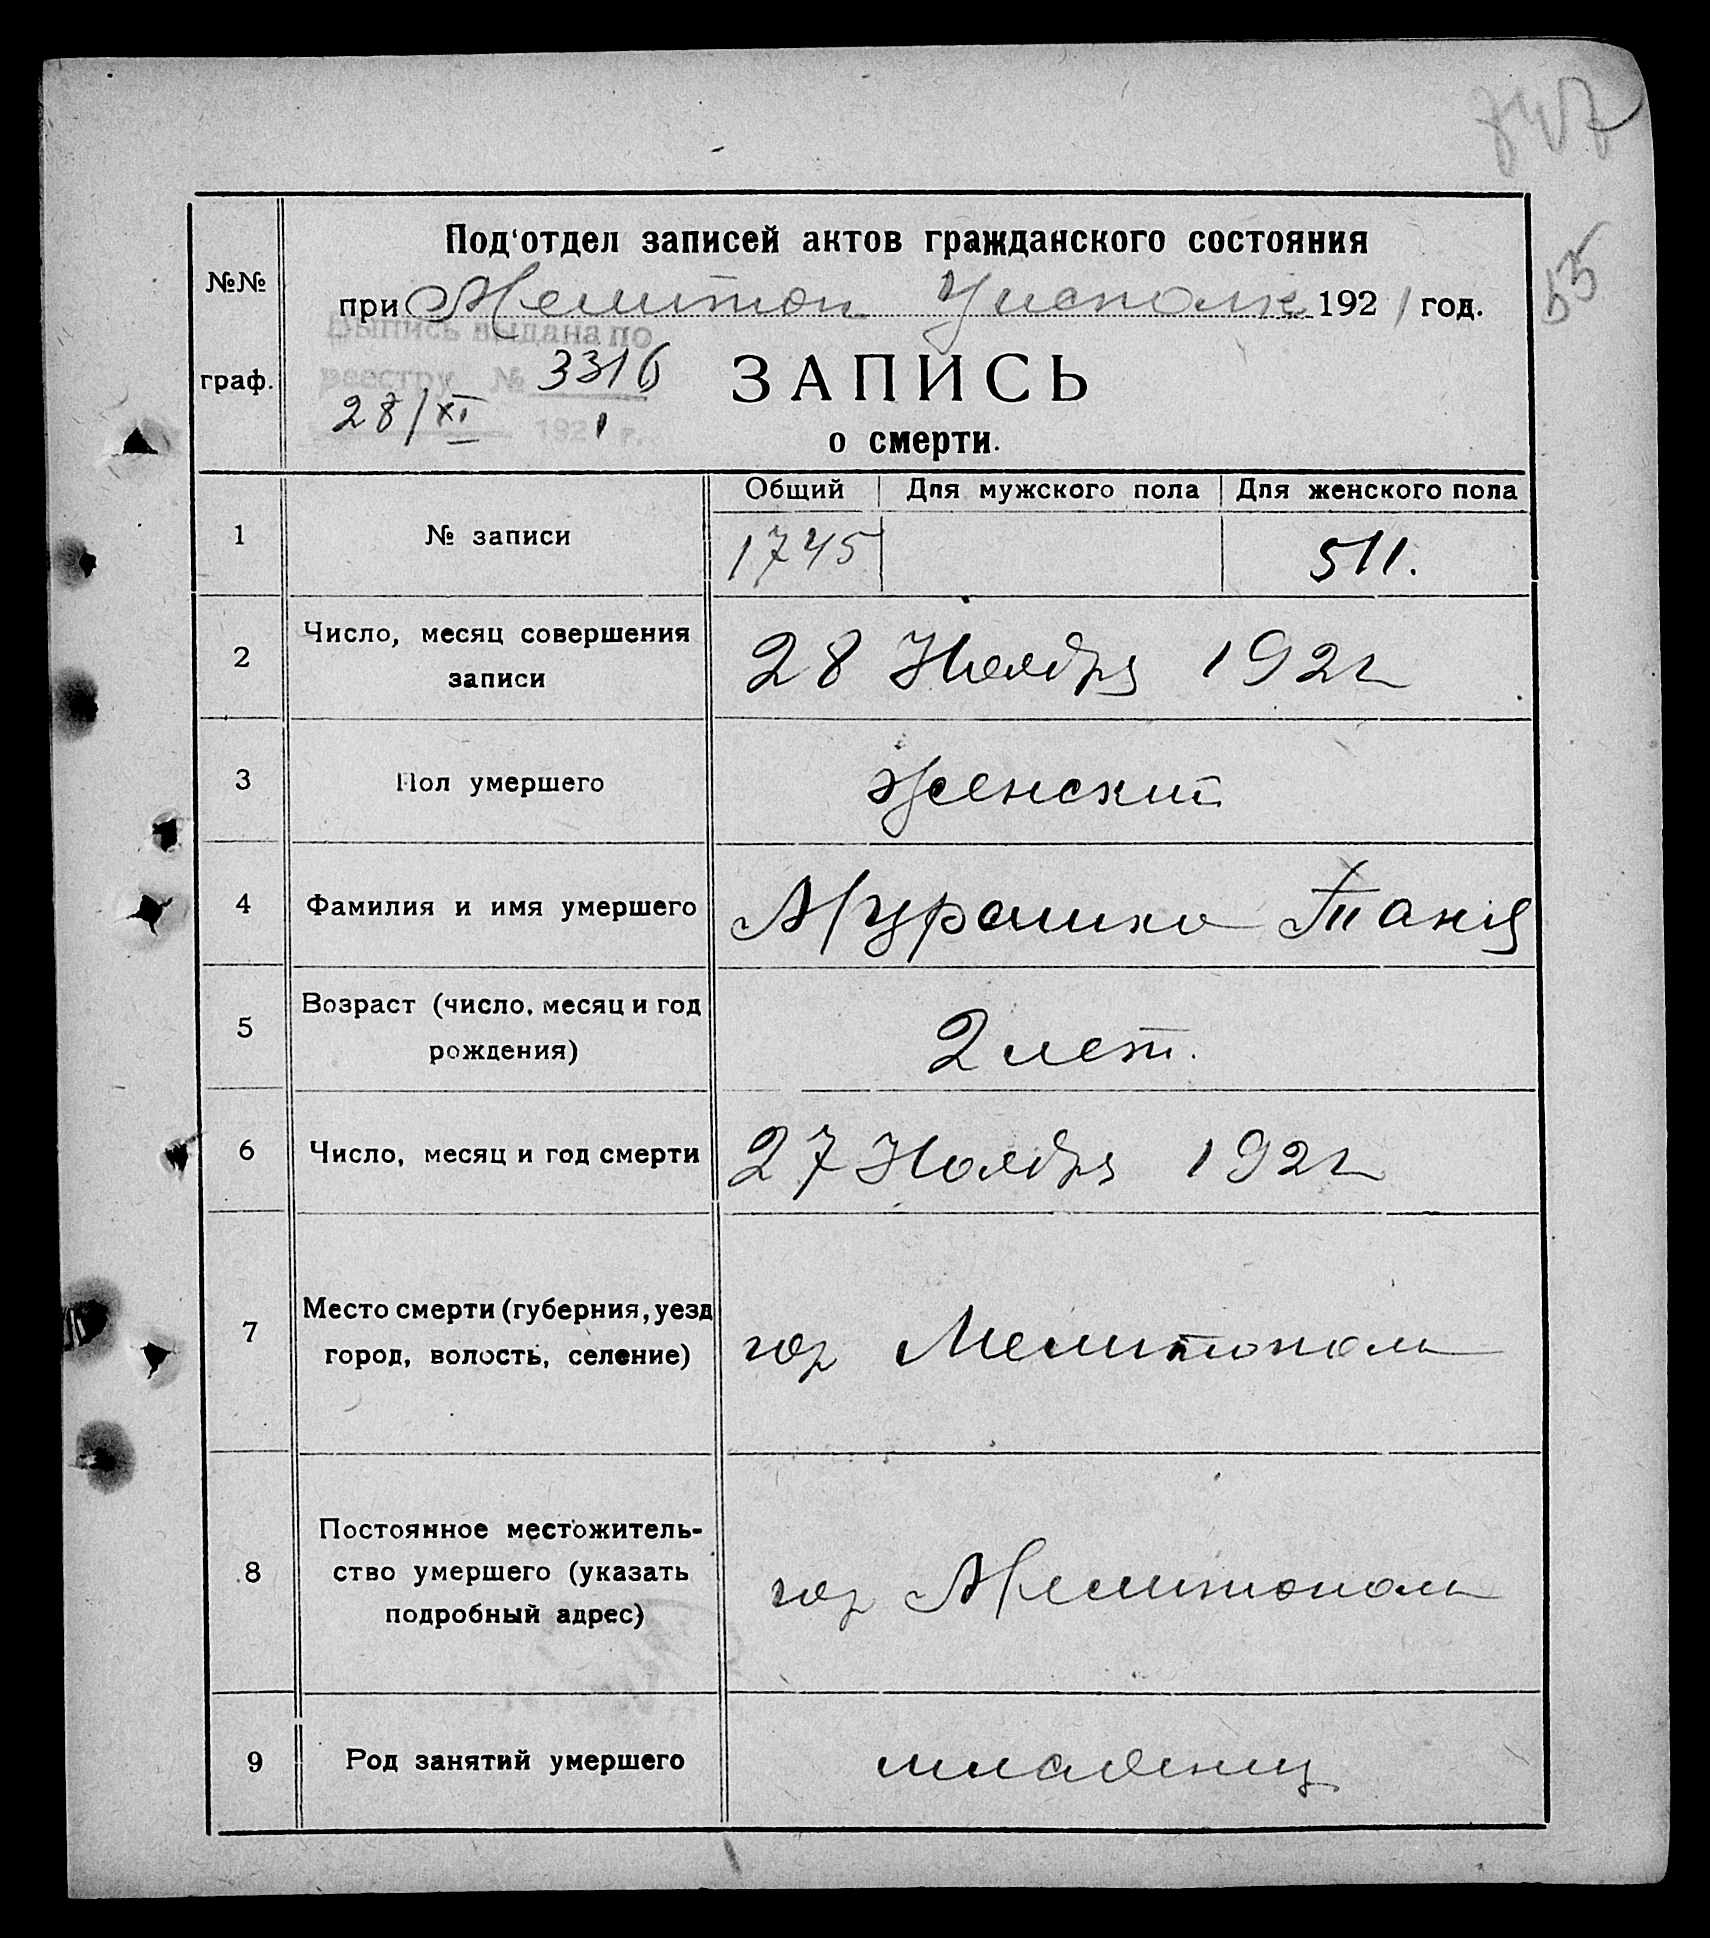 747
55
№№
граф.
Под'отдел записей актов гражданского состояния
при Мелитоп Уисполк 1921 год.
Выпись выдана по
реестру № 3316
28/XI 1921 г.
ЗАПИСЬ
о смерти.
Общий Для мужского пола Для женского пола
1 № записи 1745 511.
2 Число, месяц совершения
записи
28 Ноября 1921
3 Пол умершего женский
4 Фамилия и имя умершего Мурашко Таня
5 Возраст (число, месяц и год
рождения)
2 лет.
6 Число, месяц и год смерти 27 Ноября 1921
7 Место смерти (губерния, уезд
город, волость, селение)
гор Мелитополь
8 Постоянное местожитель-
ство умершего (указать
подробный адрес)
гор Мелитополь
9 Род занятий умершего младенец